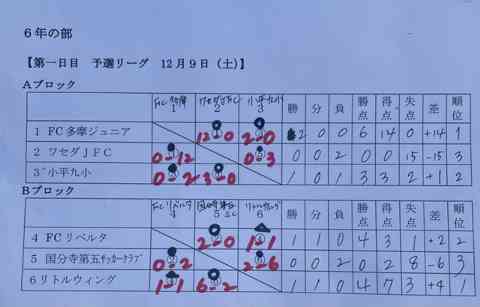 6年の部
【第一日目 予選リーグ 12月9日（土）】
Aブロック
FC多摩 1 ワセダJFC 2 小平九小 3 勝 分 負 勝点 得点 失点 差 順位
1 FC多摩ジュニア 12-0 2-0 2 0 0 6 14 0 +14 1
2 ワセダJFC 0-12 0-3 0 0 2 0 0 15 -15 3
3 小平九小 0-2 3-0 1 0 1 3 3 2 +1 2
Bブロック
FCリベルタ 4 5 SC 6 勝 分 負 勝点 得点 失点 差 順位
4 FCリベルタ 2-0 1-1 1 1 0 4 3 1 +2 2
5 国分寺第五サッカークラブ 0-2 2-6 0 0 2 0 2 8 -6 3
6 リトルウィング 1-1 6-2 1 1 0 4 7 3 +4 1